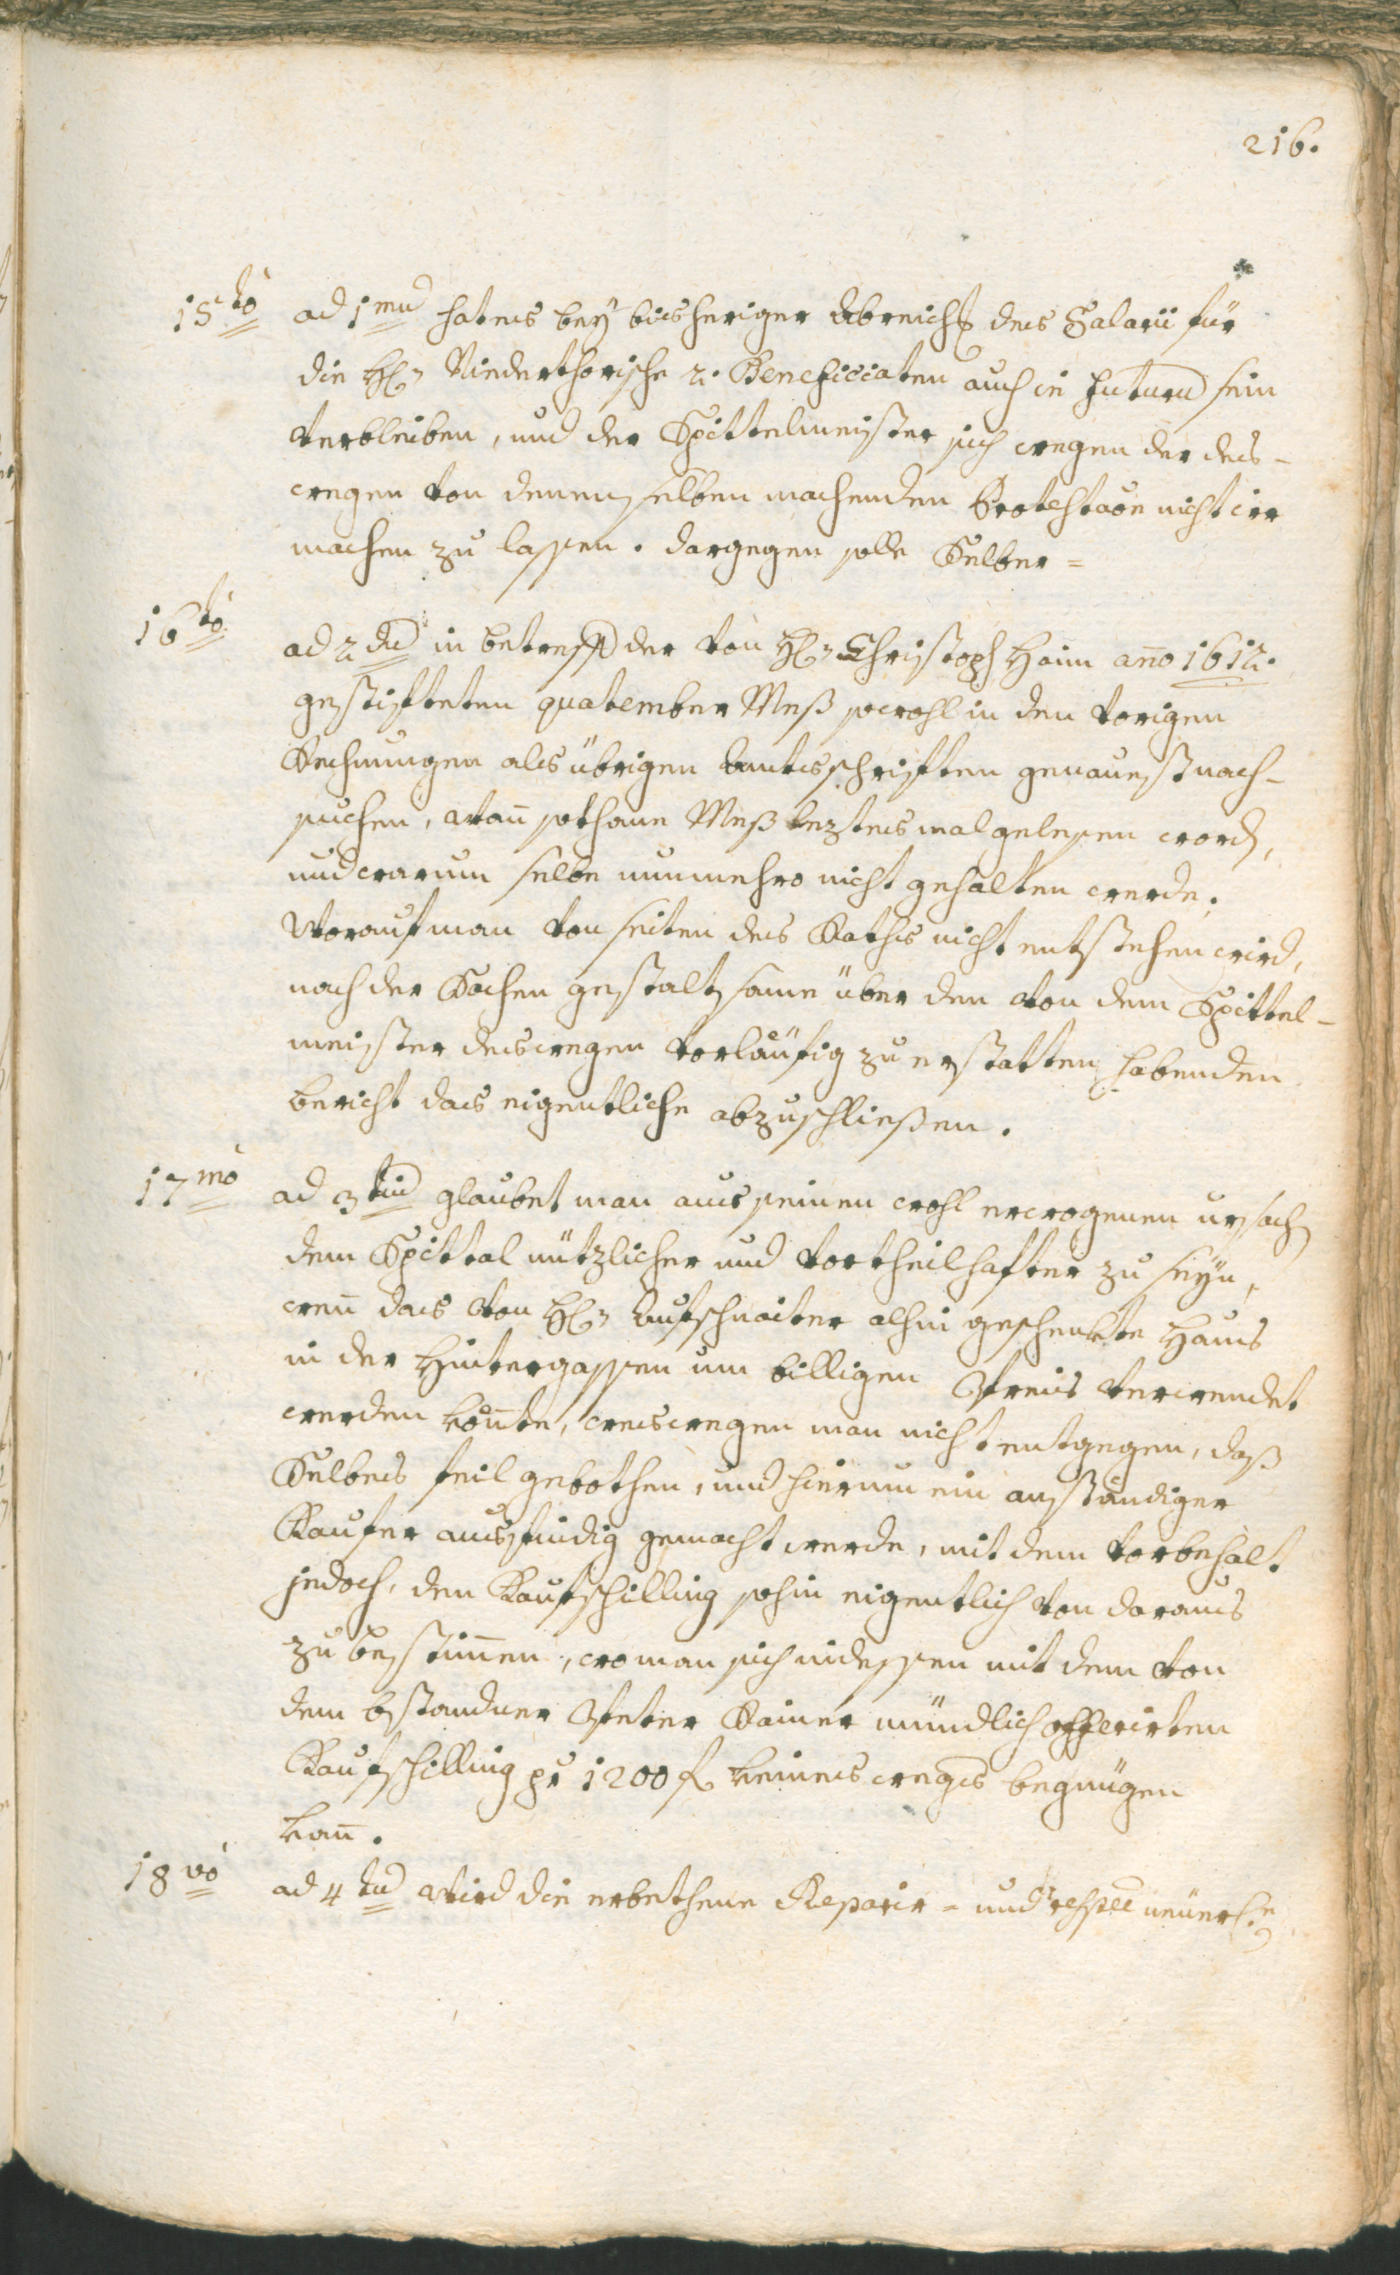 216.
15to ad 1mu hat es bey bisheriger Abreich[un]g des Salarii für
die H[er]n Niederthorische 2. Beneficiaten auch in futuru sein
Verbleiben, und der Spittelmeister sich wegen der des-
wegen von denenselben machenden Protestaõn nicht irr
machen zu lassen. dargegen solle Selber=
16to ad 2du in betreff der von H[er]n Christoph Haim anno 1612.
gestifteten quatember Meß sowohl in den vorigen
Rechnungen als übrigen Amtsschriften genauest nach-
suchen, wañ sothane Meß leztes mal gelesen word[en],
und warum selbe nunmehro nicht gehalten werde;
Worauf man von seiten des Raths nicht entstehen wird,
nach der Sachen gestaltsame über den von dem Spittel-
meister deswegen vorläufig zu erstatten habenden
bericht das eigentliche abzuschließen.
17mo ad 3tiu glaubet man aus seinen wohl erwogenen ursach[en]
dem Spittal nützlicher und vortheilhafter zu seyn,
weñ das von H[er]n Aufschnaiter alhin geschenkte Haus
in der Hintergassen um billigen Preis verwendet
werden köñte, weswegen man nicht entgegen, daß
Selbes feil gebothen, und hierum ein anständiger
Kaufer ausfindig gemacht werde, mit dem vorbehalt
jedoch, den Kaufschilling sohin eigentlich von daraus
zu bestim̄en, wo man sich indessen mit dem von
dem bständner Peter Rainer mündlich offerirten
Kaufschilling pr 1200 f keines wegs begnügen
kañ.
18vo ad 4tu wird die erbethene Reparir= und respec